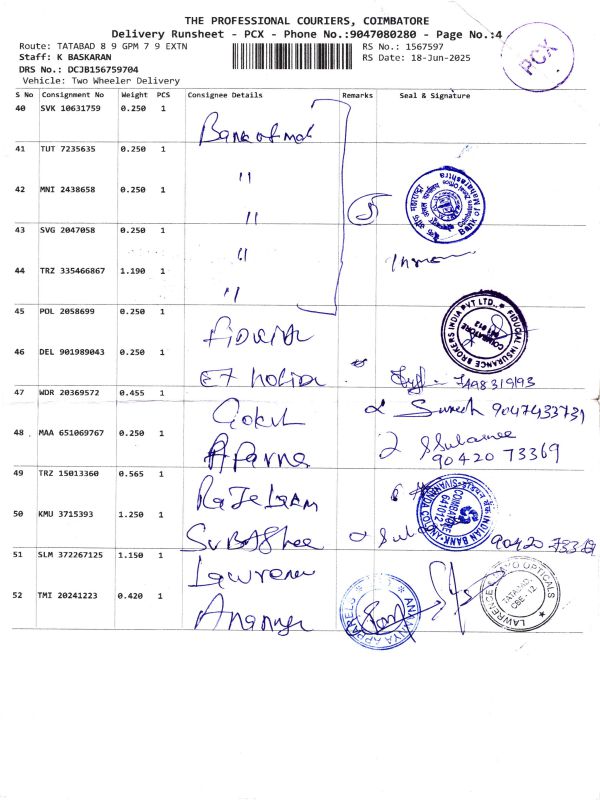 THE PROFESSIONAL COURIERS, COIMBATORE
Delivery Runsheet - PCX - Phone No.:9047080280 - Page No.:4
Route: TATABAD 8 9 GPM 7 9 EXTN
RS No.: 1567597
Staff: K BASKARAN
RS Date: 18-Jun-2025
DRS No.: DCJB156759704
Vehicle: Two Wheeler Delivery
PCX
S No Consignment No Weight PCS Consignee Details Remarks Seal & Signature
40 SVK 10631759 0.250 1
Bank of mah
41 TUT 7235635 0.250 1
"
42 MNI 2438658 0.250 1
"
5
Bank of Maharashtra
43 SVG 2047058 0.250 1
"
44 TRZ 335466867 1.190 1
"
45 POL 2058699 0.250 1
FIDUCIAL INSURANCE BROKERS INDIA PVT LTD.
COIMBATORE
641 012
46 DEL 901989043 0.250 1
47 WDR 20369572 0.455 1
Gokul
Suresh 9047433731
48 MAA 651069767 0.250 1
Aparna
90420 73369
49 TRZ 15013360 0.565 1
INDIAN BANK
COIMBATORE
641012
50 KMU 3715393 1.250 1
90420 73369
51 SLM 372267125 1.150 1
Lawrence
LAWRENCE MAYO OPTICALS
TATABAD,
CBE - 12
52 TMI 20241223 0.420 1
ANANYA APPARELS